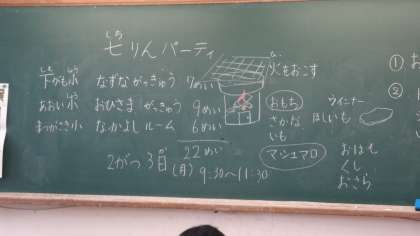 七りんパーティ
下がも小 なずながっきゅう 7めい
あおい小 おひさま がっきゅう 9めい
まつがさき小 なかよし ルーム 6めい
22めい
2がつ3日(月) 9:30〜11:30
火をおこす
おもち
さかな
いも
マシュマロ
ウインナー
ほしいも
おはし
くし
おさら
①お
②